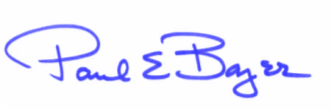 Paul E Bayer